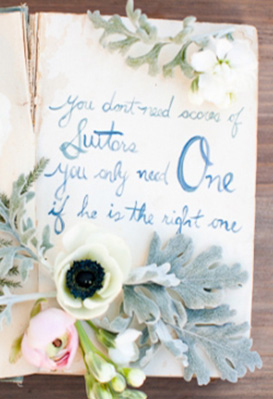 you don't need scores of
Suitors
you only need One
if he is the right one